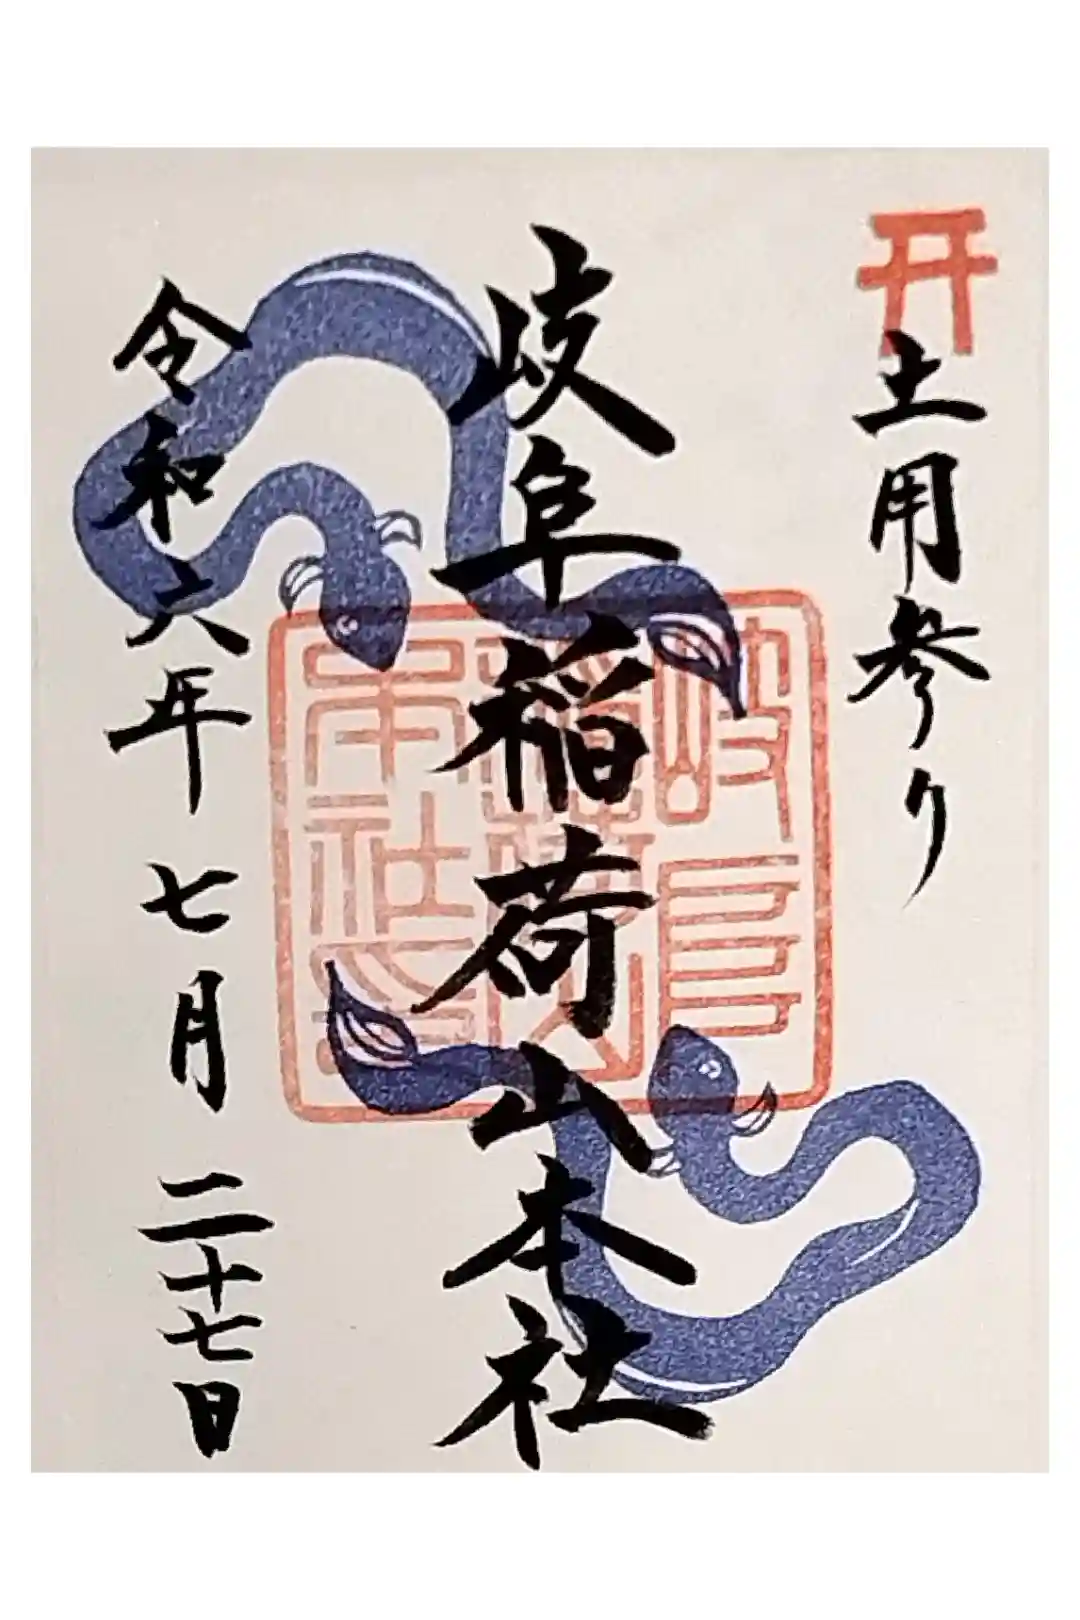 土用参り
岐阜稲荷山本社
令和六年七月二十七日
岐阜
稲荷山
本社之印